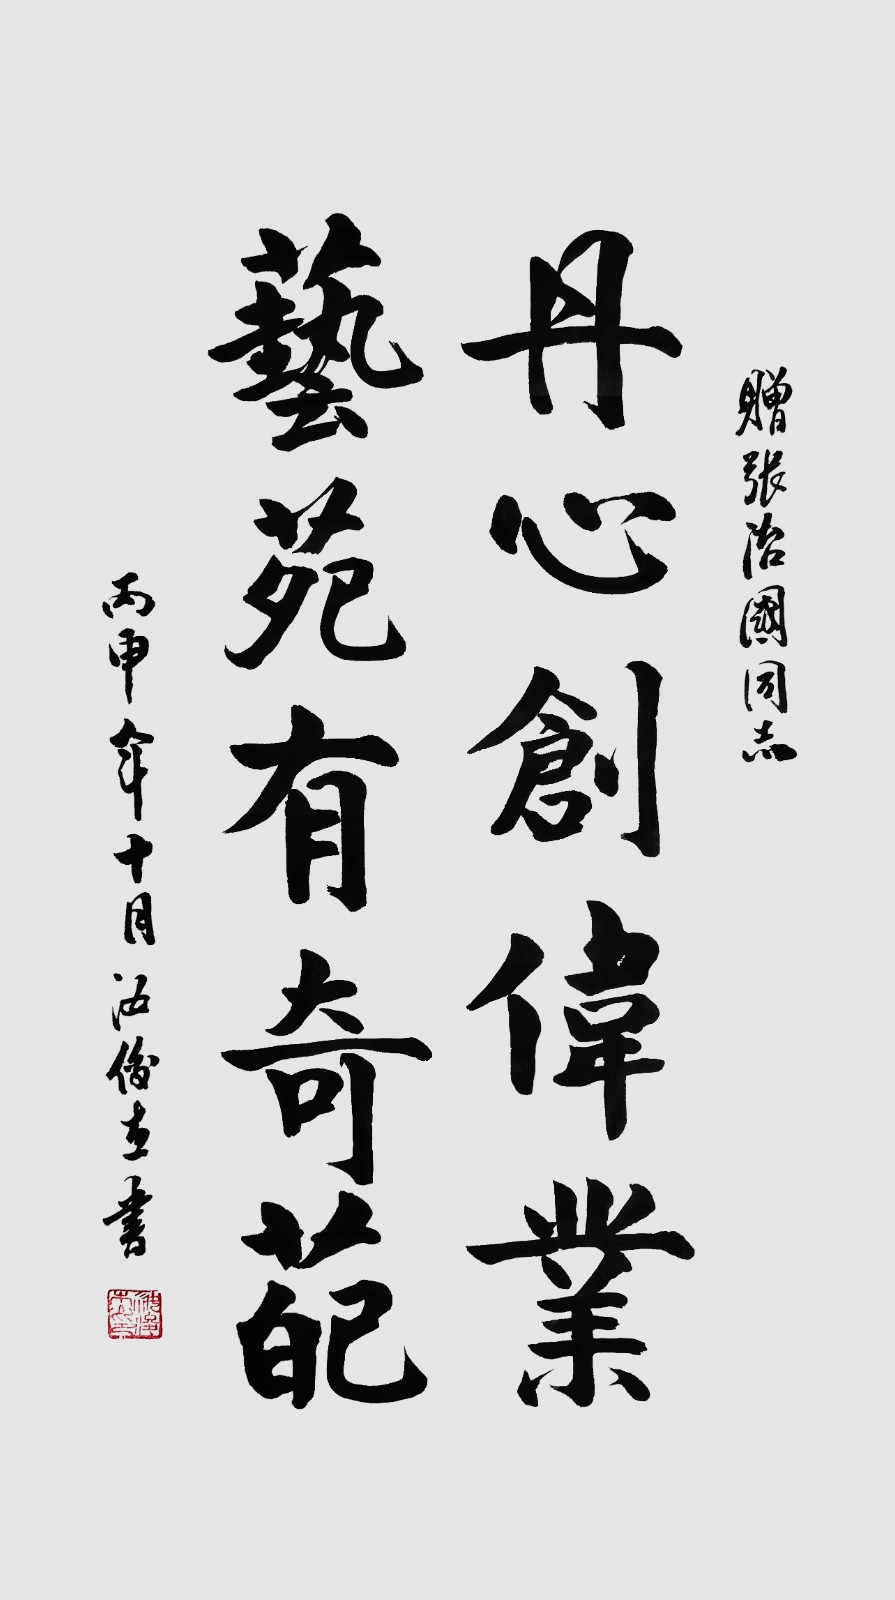 贈張治國同志
丹心創偉業
藝苑有奇葩
丙申年十月汤俊直書